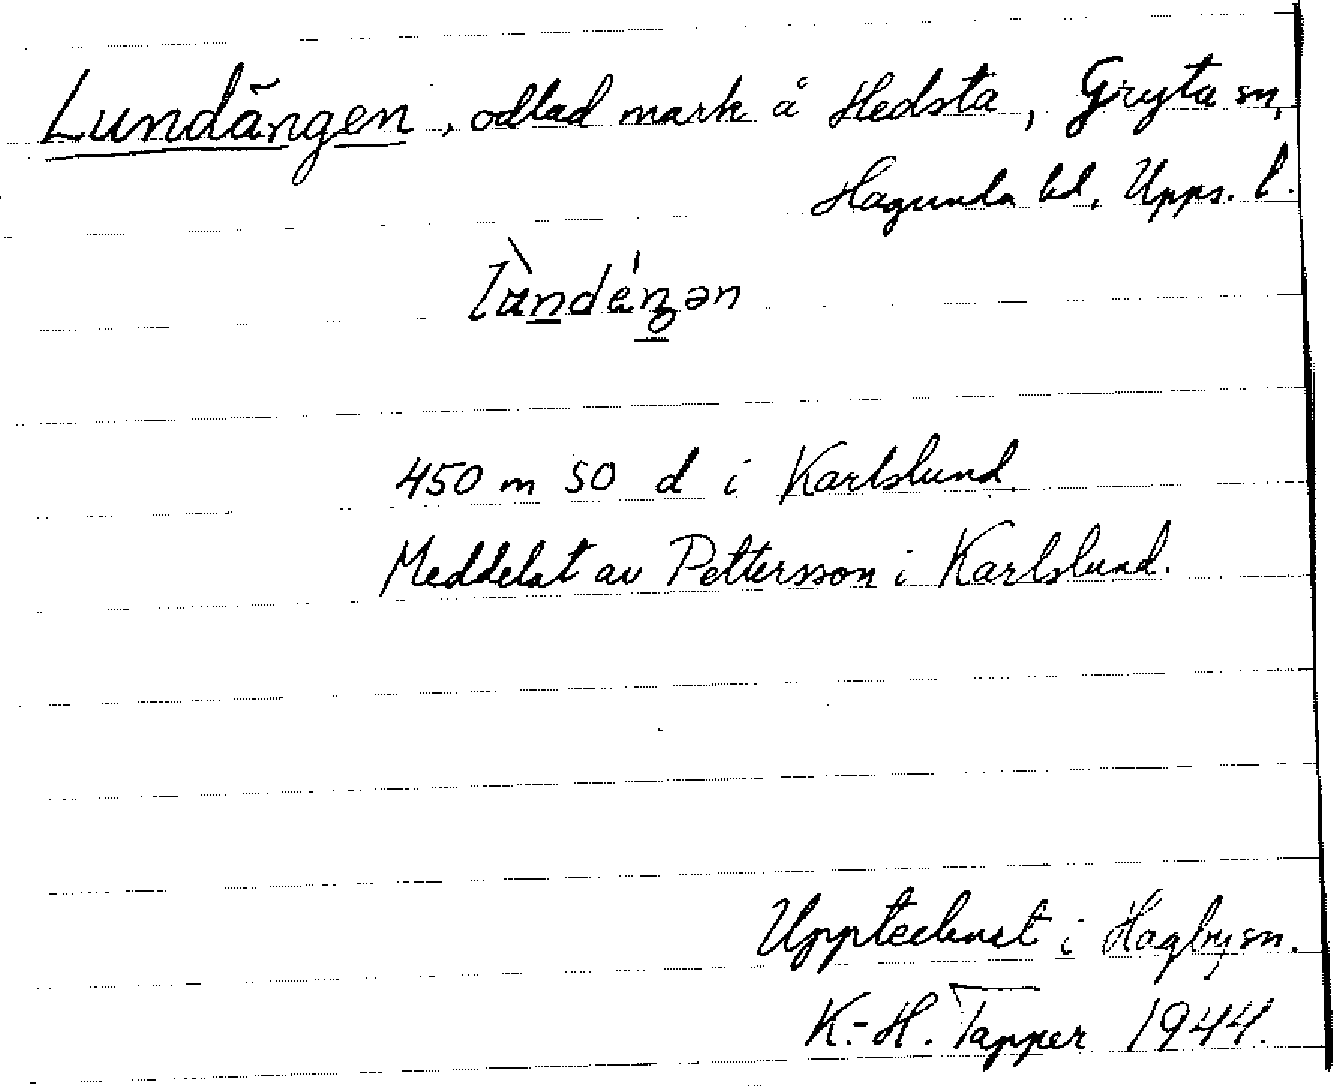 Lundängen, odlad mark å Hedsta, Gryta sn,
Hagunda hd, Upps. l.
450 m SO d i Karlslund.
Meddelat av Pettersson i Karlslund.
Upptecknat i Hagby sn.
K.-H. Tapper 1944.